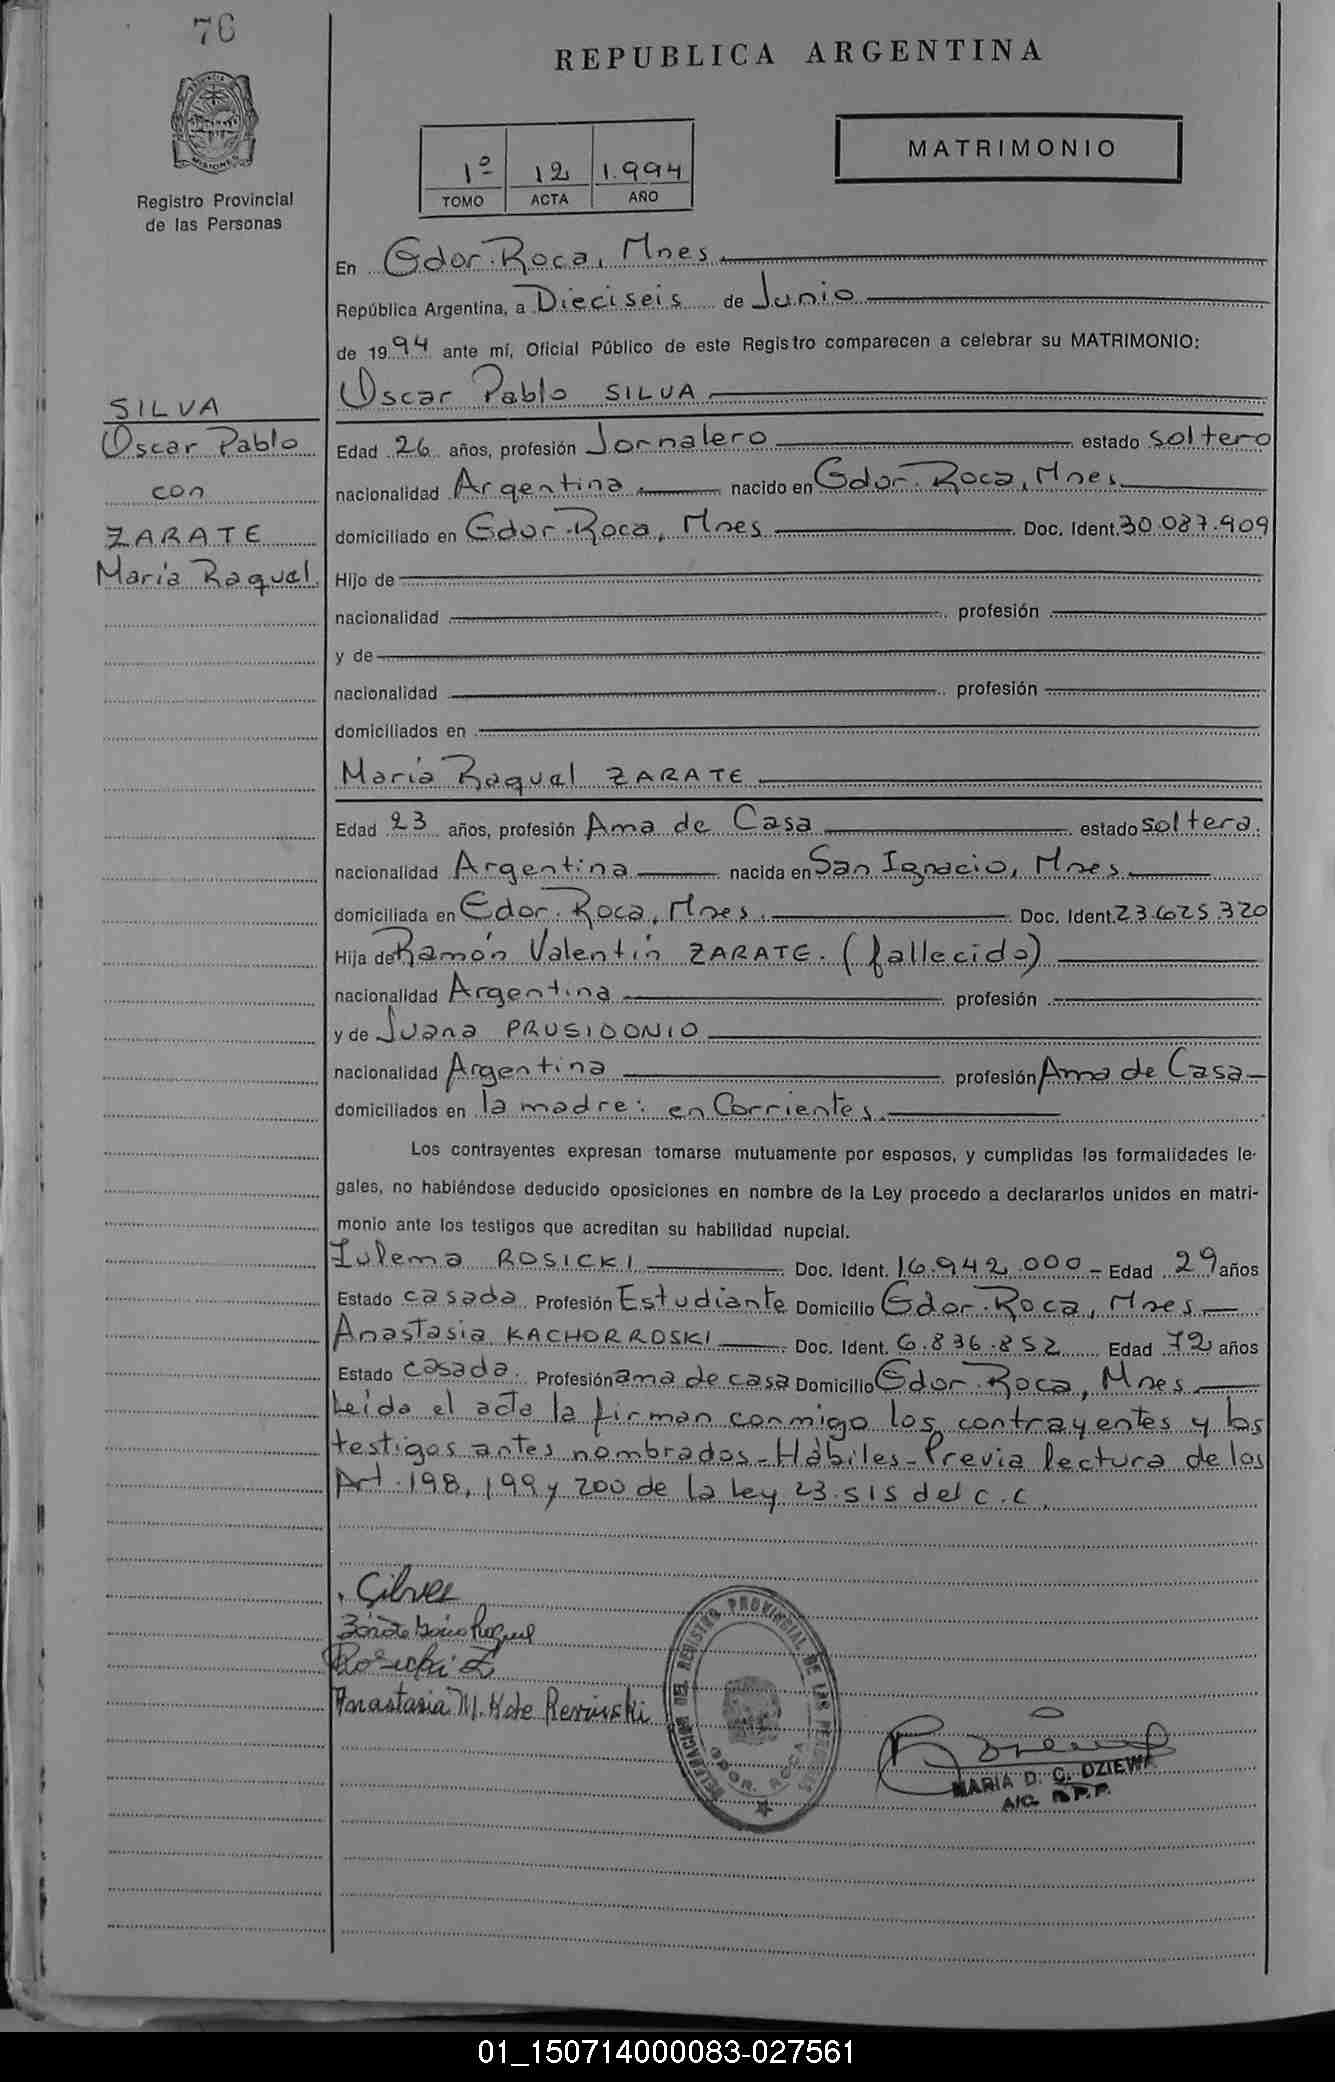 76
REPUBLICA ARGENTINA
PROVINCIA
MISIONES
Registro Provincial
de las Personas
1º 12 1.994
TOMO ACTA AÑO
MATRIMONIO
En Gdor. Roca, Mnes
República Argentina, a Dieciseis de Junio
de 1994 ante mí, Oficial Público de este Registro comparecen a celebrar su MATRIMONIO:
Oscar Pablo SILVA
SILVA
Oscar Pablo
con
ZARATE
María Raquel
Edad 26 años, profesión Jornalero estado soltero
nacionalidad Argentina nacido en Gdor. Roca, Mnes
domiciliado en Gdor. Roca, Mnes Doc. Ident. 30.087.909
Hijo de
nacionalidad profesión
y de
nacionalidad profesión
domiciliados en
María Raquel ZARATE
Edad 23 años, profesión Ama de Casa estado soltera.
nacionalidad Argentina nacida en San Ignacio, Mnes
domiciliada en Gdor. Roca, Mnes. Doc. Ident. 23.625.320
Hija de Ramón Valentín ZARATE. (fallecido)
nacionalidad Argentina profesión
y de Juana PRUSIDONIO
nacionalidad Argentina profesión Ama de Casa
domiciliados en la madre: en Corrientes
Los contrayentes expresan tomarse mutuamente por esposos, y cumplidas las formalidades le-
gales, no habiéndose deducido oposiciones en nombre de la Ley procedo a declararlos unidos en matri-
monio ante los testigos que acreditan su habilidad nupcial.
Zulema ROSICKI Doc. Ident. 16.942.000 - Edad 29 años
Estado casada Profesión Estudiante Domicilio Gdor. Roca, Mnes
Anastasia KACHORROSKI Doc. Ident. 6.836.852 Edad 72 años
Estado casada. Profesión ama de casa Domicilio Gdor. Roca, Mnes
Leída el acta la firman conmigo los contrayentes y los
testigos antes nombrados - Hábiles - Previa lectura de los
Art. 198, 199 y 200 de la ley 23.515 del C.C.
Silva
Zárate María Raquel
Rosicki Z
Anastasia M. K de
DELEGACION DEL REGISTRO PROVINCIAL DE LAS PERSONAS
GDOR. ROCA
MARIA D. G. DZIEWA
A/C. R.P.P.
01_150714000083-027561